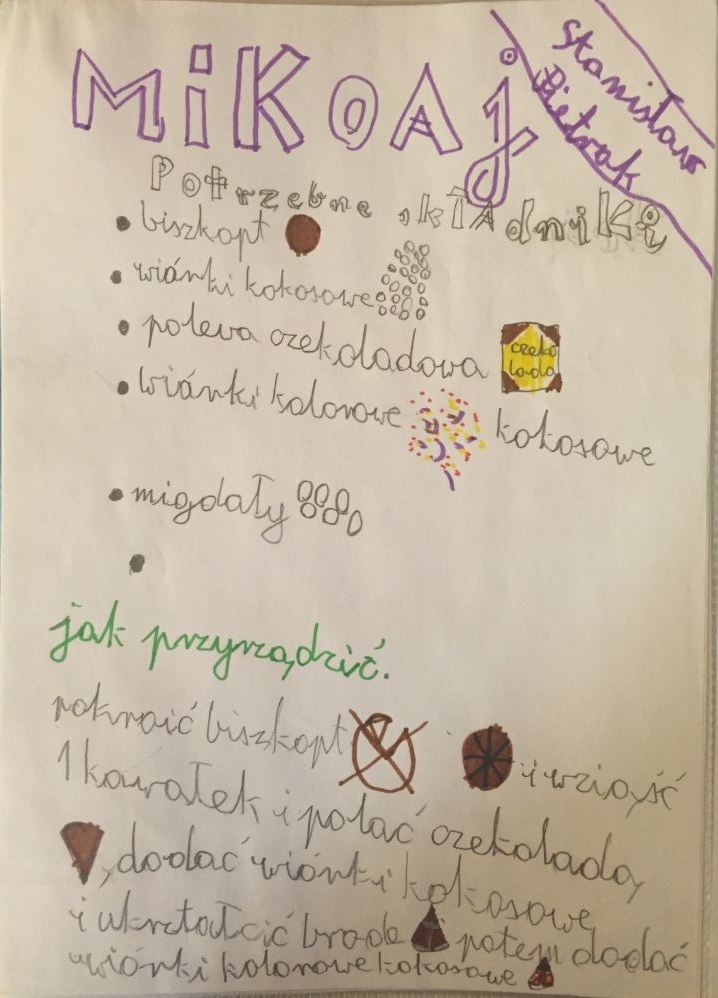 MiKOAj
Stanisław
Pietrak
Potrzebne składniki
• biszkopt
• wiánki kokosowe
• poleva czekoladowa
czeko
lada
• wiánki kolorowe kokosowe
• migdały
•
jak przyrządzić.
pokroić biszkopt i wziąść
1 kawałek i polać czekoladą
, dodać wiórki kokosowe
i ukrztałcić brode i potem dodać
wiórki kolorowe kokosowe